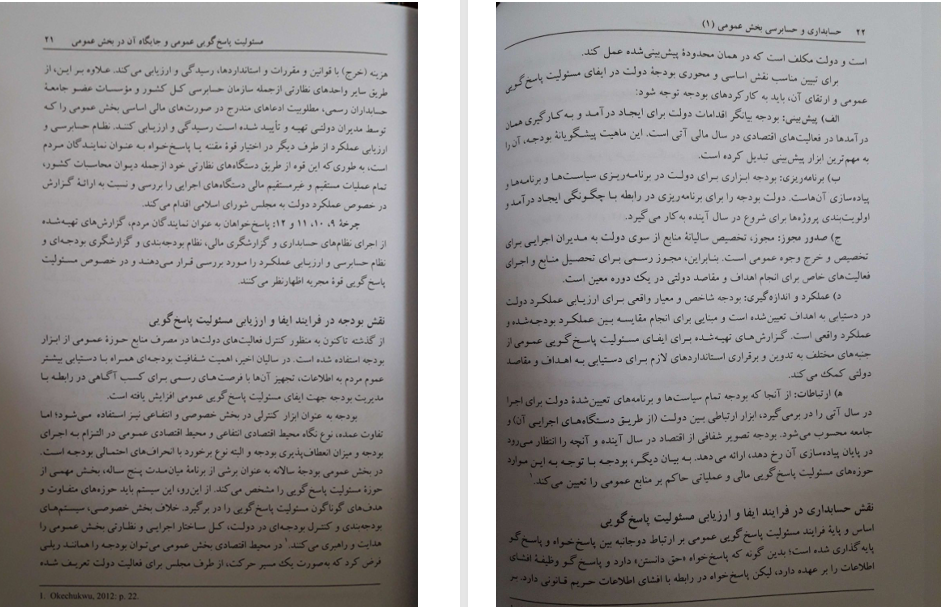 مسئولیت پاسخ‌گویی عمومی و جایگاه آن در بخش عمومی ۲۱
هزینه (خرج) با قوانین و مقررات و استانداردها، رسیدگی و ارزیابی می‌کند. علاوه بر این، از
طریق سایر واحدهای نظارتی ازجمله سازمان حسابرسی کل کشور و مؤسسات عضو جامعهٔ
حسابداران رسمی، مطلوبیت ادعاهای مندرج در صورت‌های مالی اساسی بخش عمومی را که
توسط مدیران دولتی تهیه و تأیید شده است رسیدگی و ارزیابی کنند. نظام حسابرسی و
ارزیابی عملکرد از طرف دیگر در اختیار قوهٔ مقننه یا پاسخ‌خواه به عنوان نمایندگان مردم
است، به طوری‌که این قوه از طریق دستگاه‌های نظارتی خود ازجمله دیوان محاسبات کشور،
تمام عملیات مستقیم و غیرمستقیم مالی دستگاه‌های اجرایی را بررسی و نسبت به ارائهٔ گزارش
در خصوص عملکرد دولت به مجلس شورای اسلامی اقدام می‌کند.
چرخهٔ ۹، ۱۰، ۱۱ و ۱۲: پاسخ‌خواهان به عنوان نمایندگان مردم، گزارش‌های تهیه‌شده
از اجرای نظام‌های حسابداری و گزارشگری مالی، نظام بودجه‌بندی و گزارشگری بودجه‌ای و
نظام حسابرسی و ارزیابی عملکرد را مورد بررسی قرار می‌دهند و در خصوص مسئولیت
پاسخ‌گویی قوهٔ مجریه اظهارنظر می‌کنند.
نقش بودجه در فرایند ایفا و ارزیابی مسئولیت پاسخ‌گویی
از گذشته تاکنون به منظور کنترل فعالیت‌های دولت‌ها در مصرف منابع حوزهٔ عمومی از ابزار
بودجه استفاده شده است. در سالیان اخیر، اهمیت شفافیت بودجه‌ای همراه با دستیابی بیشتر
عموم مردم به اطلاعات، تجهیز آن‌ها با فرصت‌های رسمی برای کسب آگاهی در رابطه با
مدیریت بودجه جهت ایفای مسئولیت پاسخ‌گویی عمومی افزایش یافته است.
بودجه به عنوان ابزار کنترلی در بخش خصوصی و انتفاعی نیز استفاده می‌شود؛ اما
تفاوت عمده، نوع نگاه محیط اقتصادی انتفاعی و محیط اقتصادی عمومی در التزام به اجرای
بودجه و میزان انعطاف‌پذیری بودجه و البته نوع برخورد با انحراف‌های احتمالی بودجه است.
در بخش عمومی بودجهٔ سالانه به عنوان برشی از برنامهٔ میان‌مدت پنج ساله، بخش مهمی از
حوزهٔ مسئولیت پاسخ‌گویی را مشخص می‌کند. از این‌رو، این سیستم باید حوزه‌های متفاوت و
هدف‌های گوناگون مسئولیت پاسخ‌گویی را در برگیرد. خلاف بخش خصوصی، سیستم‌های
بودجه‌بندی و کنترل بودجه‌ای در دولت، کل ساختار اجرایی و نظارتی بخش عمومی را
هدایت و راهبری می‌کند.۱ در محیط اقتصادی بخش عمومی می‌توان بودجه را همانند ریلی
فرض کرد که به‌صورت یک مسیر حرکت، از طرف مجلس برای فعالیت دولت تعریف شده
1. Okechukwu, 2012: p. 22.
۲۲ حسابداری و حسابرسی بخش عمومی (۱)
است و دولت مکلف است که در همان محدودهٔ پیش‌بینی‌شده عمل کند.
برای تبیین مناسب نقش اساسی و محوری بودجهٔ دولت در ایفای مسئولیت پاسخ‌گویی
عمومی و ارتقای آن، باید به کارکردهای بودجه توجه شود:
الف) پیش‌بینی: بودجه بیانگر اقدامات دولت برای ایجاد درآمد و به‌کارگیری همان
درآمدها در فعالیت‌های اقتصادی در سال مالی آتی است. این ماهیت پیشگویانهٔ بودجه، آن را
به مهم‌ترین ابزار پیش‌بینی تبدیل کرده است.
ب) برنامه‌ریزی: بودجه ابزاری برای دولت در برنامه‌ریزی سیاست‌ها و برنامه‌ها و
پیاده‌سازی آن‌هاست. دولت بودجه را برای برنامه‌ریزی در رابطه با چگونگی ایجاد درآمد و
اولویت‌بندی پروژه‌ها برای شروع در سال آینده به‌کار می‌گیرد.
ج) صدور مجوز: مجوز، تخصیص سالیانهٔ منابع از سوی دولت به مدیران اجرایی برای
تخصیص و خرج وجوه عمومی است. بنابراین، مجوز رسمی برای تحصیل منابع و اجرای
فعالیت‌های خاص برای انجام اهداف و مقاصد دولتی در یک دوره معین است.
د) عملکرد و اندازه‌گیری: بودجه شاخص و معیار واقعی برای ارزیابی عملکرد دولت
در دستیابی به اهداف تعیین‌شده است و مبنایی برای انجام مقایسه بین عملکرد بودجه‌شده و
عملکرد واقعی است. گزارش‌های تهیه‌شده برای ایفای مسئولیت پاسخ‌گویی عمومی از
جنبه‌های مختلف به تدوین و برقراری استانداردهای لازم برای دستیابی به اهداف و مقاصد
دولتی کمک می‌کند.
ه) ارتباطات: از آنجا که بودجه تمام سیاست‌ها و برنامه‌های تعیین‌شدهٔ دولت برای اجرا
در سال آتی را در برمی‌گیرد، ابزار ارتباطی بین دولت (از طریق دستگاه‌های اجرایی آن) و
جامعه محسوب می‌شود. بودجه تصویر شفافی از اقتصاد در سال آینده و آنچه را انتظار می‌رود
در پایان پیاده‌سازی آن رخ دهد، ارائه می‌دهد. به بیان دیگر، بودجه با توجه به این موارد
حوزه‌های مسئولیت پاسخ‌گویی مالی و عملیاتی حاکم بر منابع عمومی را تعیین می‌کند.۱
نقش حسابداری در فرایند ایفا و ارزیابی مسئولیت پاسخ‌گویی
اساس و پایهٔ فرایند مسئولیت پاسخ‌گویی عمومی بر ارتباط دوجانبه بین پاسخ‌خواه و پاسخ‌گو
پایه‌گذاری شده است؛ بدین گونه که پاسخ‌خواه «حق دانستن» دارد و پاسخ‌گو وظیفهٔ افشای
اطلاعات را بر عهده دارد، لیکن پاسخ‌خواه در رابطه با افشای اطلاعات حریم قانونی دارد. بر